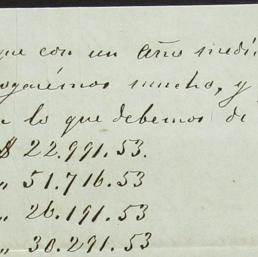 que con un año medi
ogarémos mucho, y
lo que debemos de
$ 22.991.53.
„ 51.716.53
„ 26.191.53
„ 30.291.53